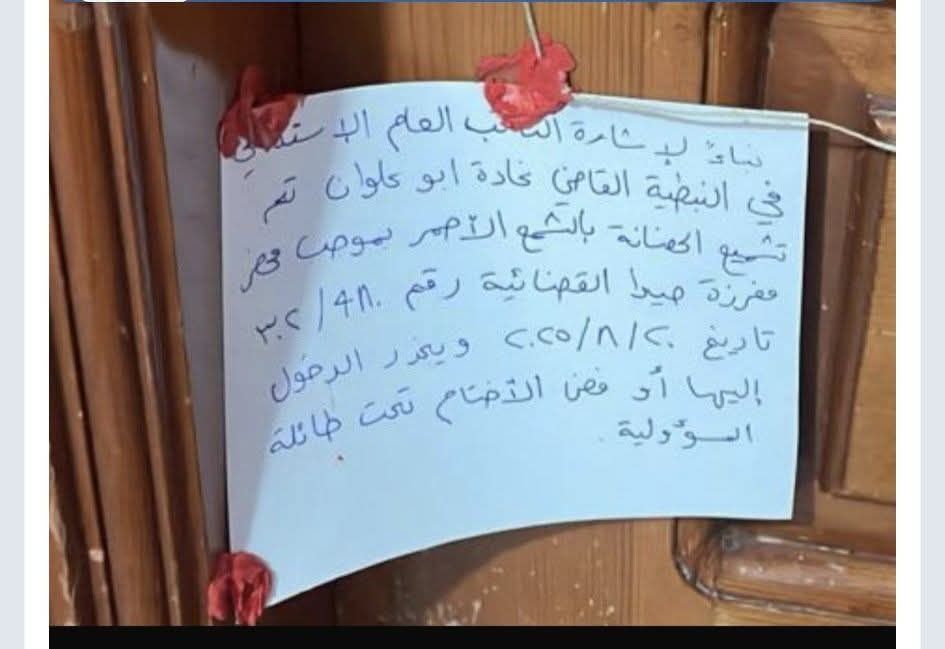 بناءً لإشارة النائب العام الاستئنافي
في النبطية القاضي غادة ابو علوان تم
تشميع الحضانة بالشمع الأحمر بموجب محضر
مفرزة صيدا القضائية رقم ٣٠٢/٤٨٠
تاريخ ٢٠٢٥/٨/٢٠ ويحذر الدخول
إليها أو فض الأختام تحت طائلة
المسؤولية.